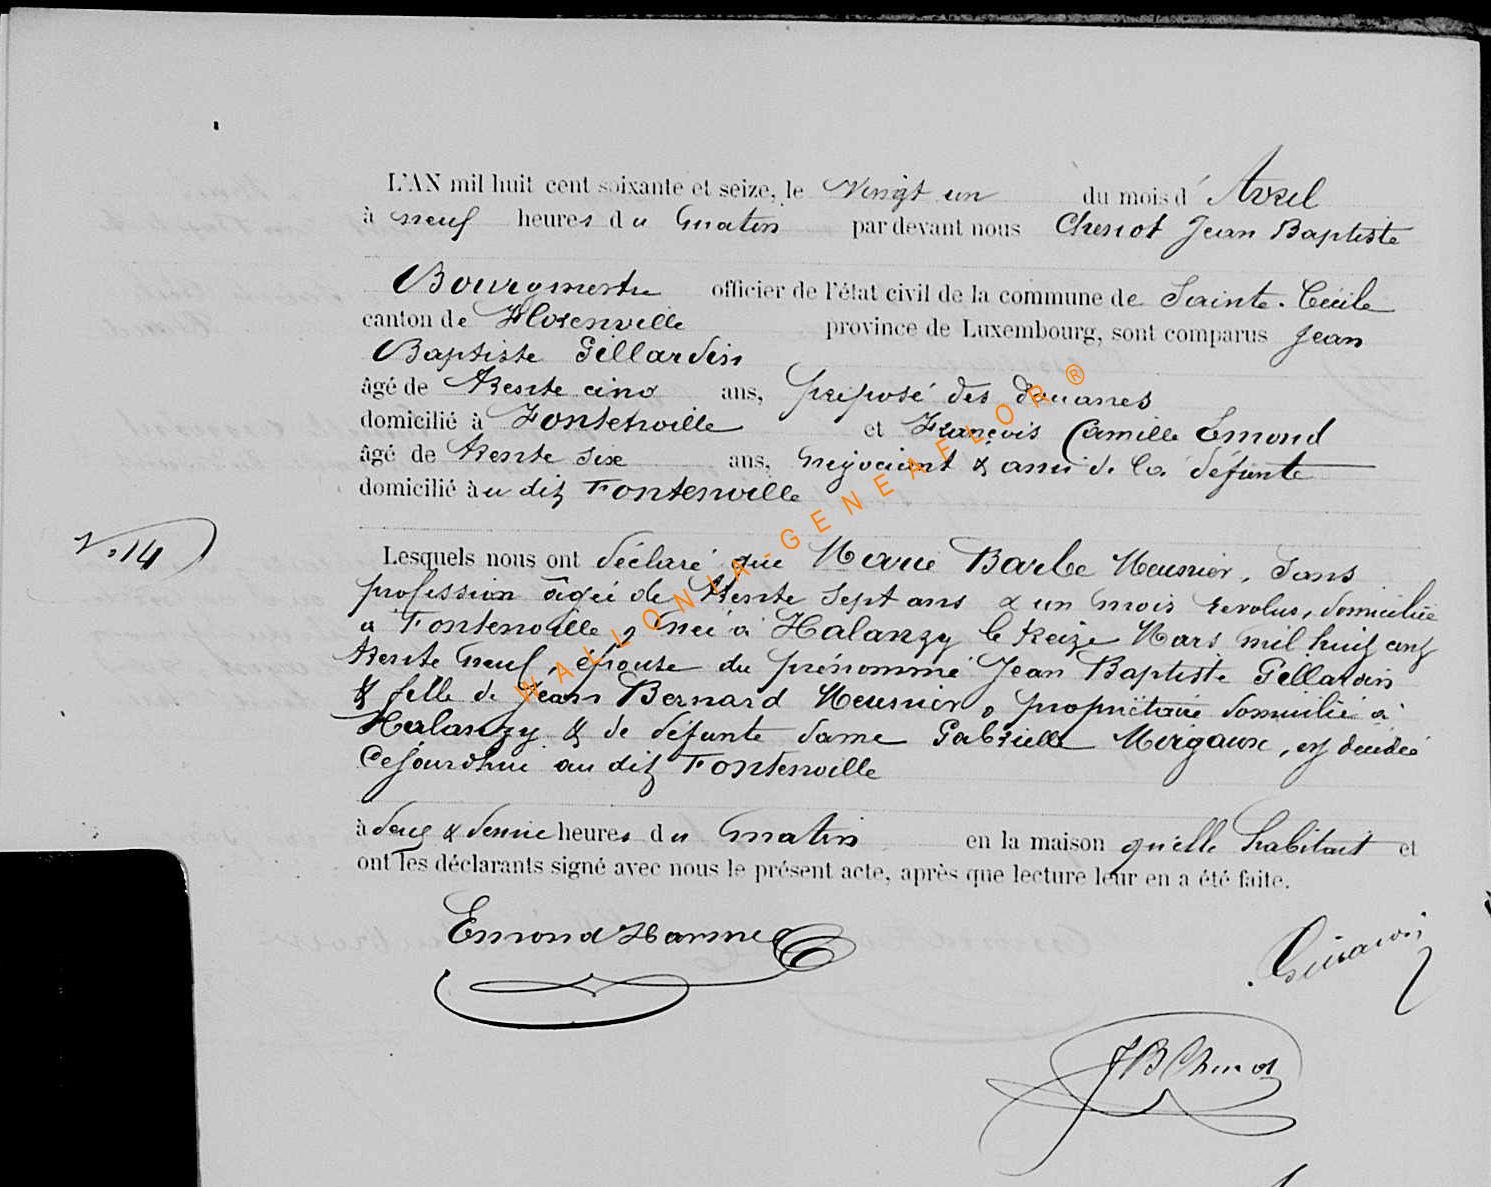 L'AN mil huit cent soixante et seize, le Vingt un du mois d' Avril
à neuf heures du matin par devant nous Chenot Jean Baptiste
Bourgmestre officier de l'état civil de la commune de Sainte-Cécile
canton de Florenville province de Luxembourg, sont comparus Jean
Baptiste Gillardin
âgé de trente cinq ans, préposé des douanes
domicilié à Fontenoille et François Camille Emond
âgé de trente six ans, négociant & ami de la défunte
domicilié au dit Fontenoille
N° 14
Lesquels nous ont déclaré que Marie Barbe Meunier, Sans
profession âgée de trente sept ans & un mois révolus, domiciliée
à Fontenoille, née à Halanzy le treize Mars mil huit cent
trente neuf, épouse du prénommé Jean Baptiste Gillardin
& fille de Jean Bernard Meunier, propriétaire domicilié à
Halanzy & de défunte dame Gabrielle Mergaux, est décédée
cejourdhui au dit Fontenoille
à deux & demie heures du matin en la maison qu'elle habitait et
ont les déclarants signé avec nous le présent acte, après que lecture leur en a été faite.
Emond
JB Chenot
WALLONIA-GENEAFLOR®